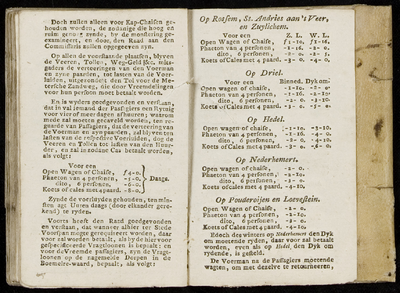 Doch zullen alleen voor Kap-Chaisen ge-
houden worden, de zodanige die hoog en
ruim genoeg zynde, by de monstering ge-
examineert en door den Raad aan den
Commissaris zullen opgegeven zyn.
Op alle de voorstaande plaatsen, blyven
de Veeren, Tollen, Weg-Geld &c. mits-
gaders de verteeringen van den Voerman
en zyne paarden, tot lasten van de Voer-
luiden, uitgezondert den Tol voor de Me-
tersche Zandweg, die door Vreemdelingen
voor hun persoon moet betaalt worden.
En is wyders goedgevonden en verstaan,
dat in val iemand der Passagiers een Rytuig
voor vier of meer dagen afhuuren, waarom
mede zal moeten gevaceert worden, ten re-
guarde van Passagiers, dat de verteering van
de Voerman en zyn paarden, zal blyven ten
lasten van de respective Voerluiden, dog de
Veeren en Tollen tot lasten van den Huur-
der, en zal in zodane Cas betaalt werden,
als volgt:
Voor een
Open Wagen of Chaise, ƒ4-0.
Phaeton van 4 persoonen, - 5-0.
dito, 6 persoonen, - 6-0.
Koets of Calas met 4 paard. - 8-0.
Daags.
Zynde de voerluyden gehouden, ten min-
sten agt Uuren daags (door elkander gere-
kend) te ryden.
Voorts heeft den Raad goedgevonden
en verstaan, dat wanneer alhier ter Stede
Voorspan mogte gerequireert worden, daar
voor zal worden betaalt, als by de hier voor
gespecificeerde Vragtloonen is bepaalt; en
voor de Vreemde passagiers, zyn de Vragt-
loonen op de nagemelde Dorpen in de
Bommelre-waard, bepaalt, als volgt:
Op Rossem, St. Andries aan 't Veer,
en Zuylichem.
Voor een Z. L. W. L.
Open Wagen of Chaise,
Phaeton van 4 persoonen,
dito, 6 persoonen,
Koets of Calas met 4 paard.
Op Driel.
Voor een Binned. Dyk om.
Open Wagen of chaise,
Phaeton van 4 persoonen,
dito, 6 persoonen,
Koets of Calas met 4 paard.
Op Hedel.
Open wagen of chaise,
Phaeton van 4 persoonen,
dito, 6 persoonen,
Koets of Calas met 4 paard.
Op Nederhemert.
Open wagen of chaise, - 2- 0.
Phaeton van 4 persoonen,
dito, 6 persoonen,
Koets of calas met 4 paard. - 4-10.
Op Pouderoijen en Loevestein.
Open Wagen of Chaise,
Phaeton van 4 persoonen,
dito, 6 persoonen,
Koets of Calas met 4 paard.
Edoch des winters op Nederhemert den Dyk
om moetende ryden, daar voor zal betaalt
worden, even als op Hedel, den Dyk om
rydende, is gesteld.
De Voerman na de Passagiers moetende
wagten, om met dezelve te retourneeren,